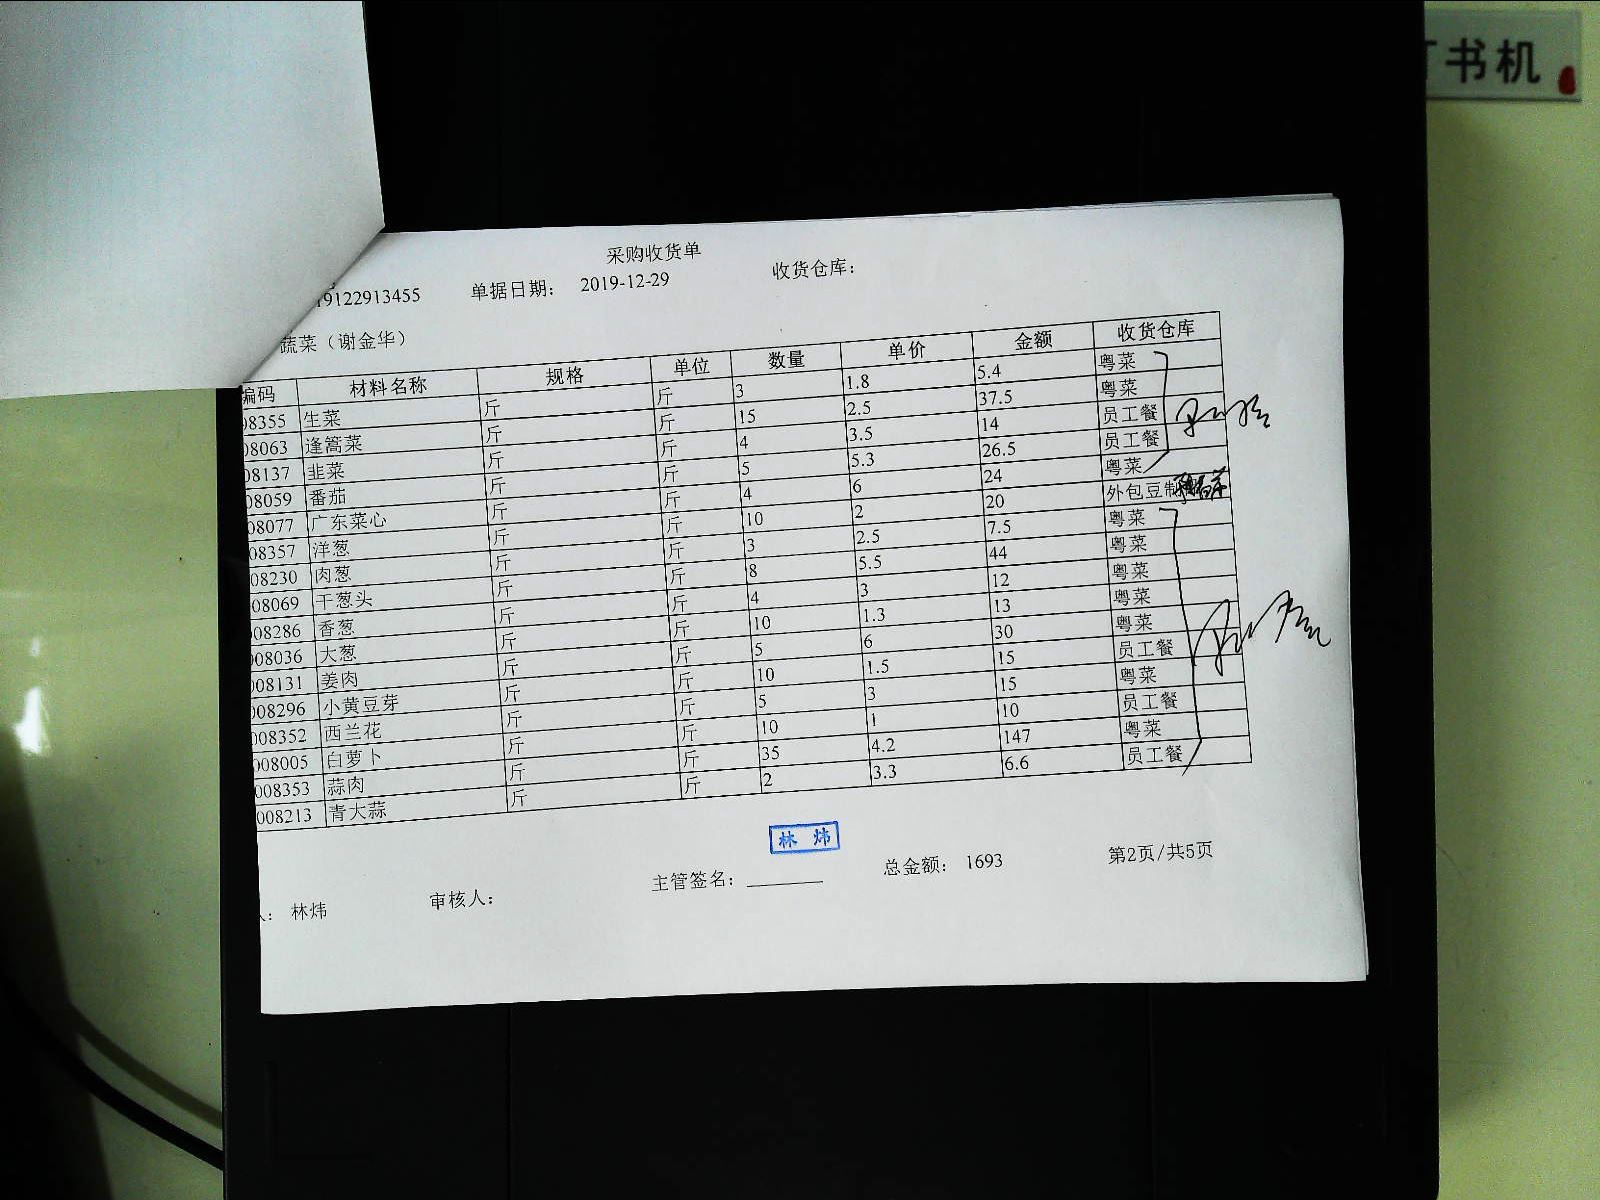 书机
采购收货单
19122913455 单据日期： 2019-12-29 收货仓库：
蔬菜（谢金华）
编码 材料名称 规格 单位 数量 单价 金额 收货仓库
08355 生菜 斤 斤 3 1.8 5.4 粤菜
08063 逢篙菜 斤 斤 15 2.5 37.5 粤菜
08137 韭菜 斤 斤 4 3.5 14 员工餐
08059 番茄 斤 斤 5 5.3 26.5 员工餐
08077 广东菜心 斤 斤 4 6 24 粤菜
08357 洋葱 斤 斤 10 2 20 外包豆制
08230 肉葱 斤 斤 3 2.5 7.5 粤菜
08069 干葱头 斤 斤 8 5.5 44 粤菜
008286 香葱 斤 斤 4 3 12 粤菜
008036 大葱 斤 斤 10 1.3 13 粤菜
008131 姜肉 斤 斤 5 6 30 粤菜
008296 小黄豆芽 斤 斤 10 1.5 15 员工餐
008352 西兰花 斤 斤 5 3 15 粤菜
008005 白萝卜 斤 斤 10 1 10 员工餐
008353 蒜肉 斤 斤 35 4.2 147 粤菜
008213 青大蒜 斤 斤 2 3.3 6.6 员工餐
林炜
人： 林炜 审核人： 主管签名： 总金额： 1693 第2页/共5页